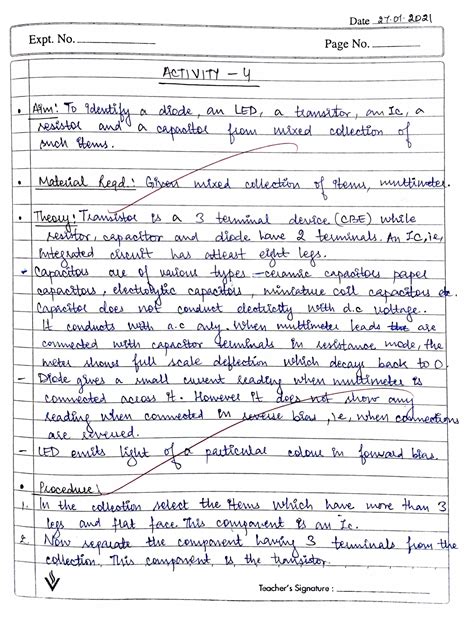 Date 27.01.2021
Expt. No.
Page No.
ACTIVITY - 4
• Aim: To identify a diode, an LED, a transitor, an Ic, a
resistor and a capacitor from mixed collection of
such items.
• Material Reqd.: Given mixed collection of items, multimeter.
• Theory: Transistor is a 3 terminal device (CBE) while
resistor, capacitor and diode have 2 terminals. An IC, i.e,
integrated circuit has atleast eight legs.
- Capacitors are of various types - ceramic capacitors paper
capacitors, electrolytic capacitors, miniature coil capacitors etc.
Capacitor does not conduct electricity with d.c voltage.
It conducts with a.c only. When multimeter leads are
connected with capacitor terminals in resistance mode, the
meter shows full scale deflection which decays back to 0.
- Diode gives a small current reading when multimeter is
connected across it. However it does not show any
reading when connected in reverse bias, i.e, when connections
are reversed.
- LED emits light of a particular colour in forward bias.
• Procedure:
1. In the collection select the items which have more than 3
legs and flat face. This component is an Ic.
2. Now separate the component having 3 terminals from the
collection. This component, is the transistor.
Teacher's Signature :